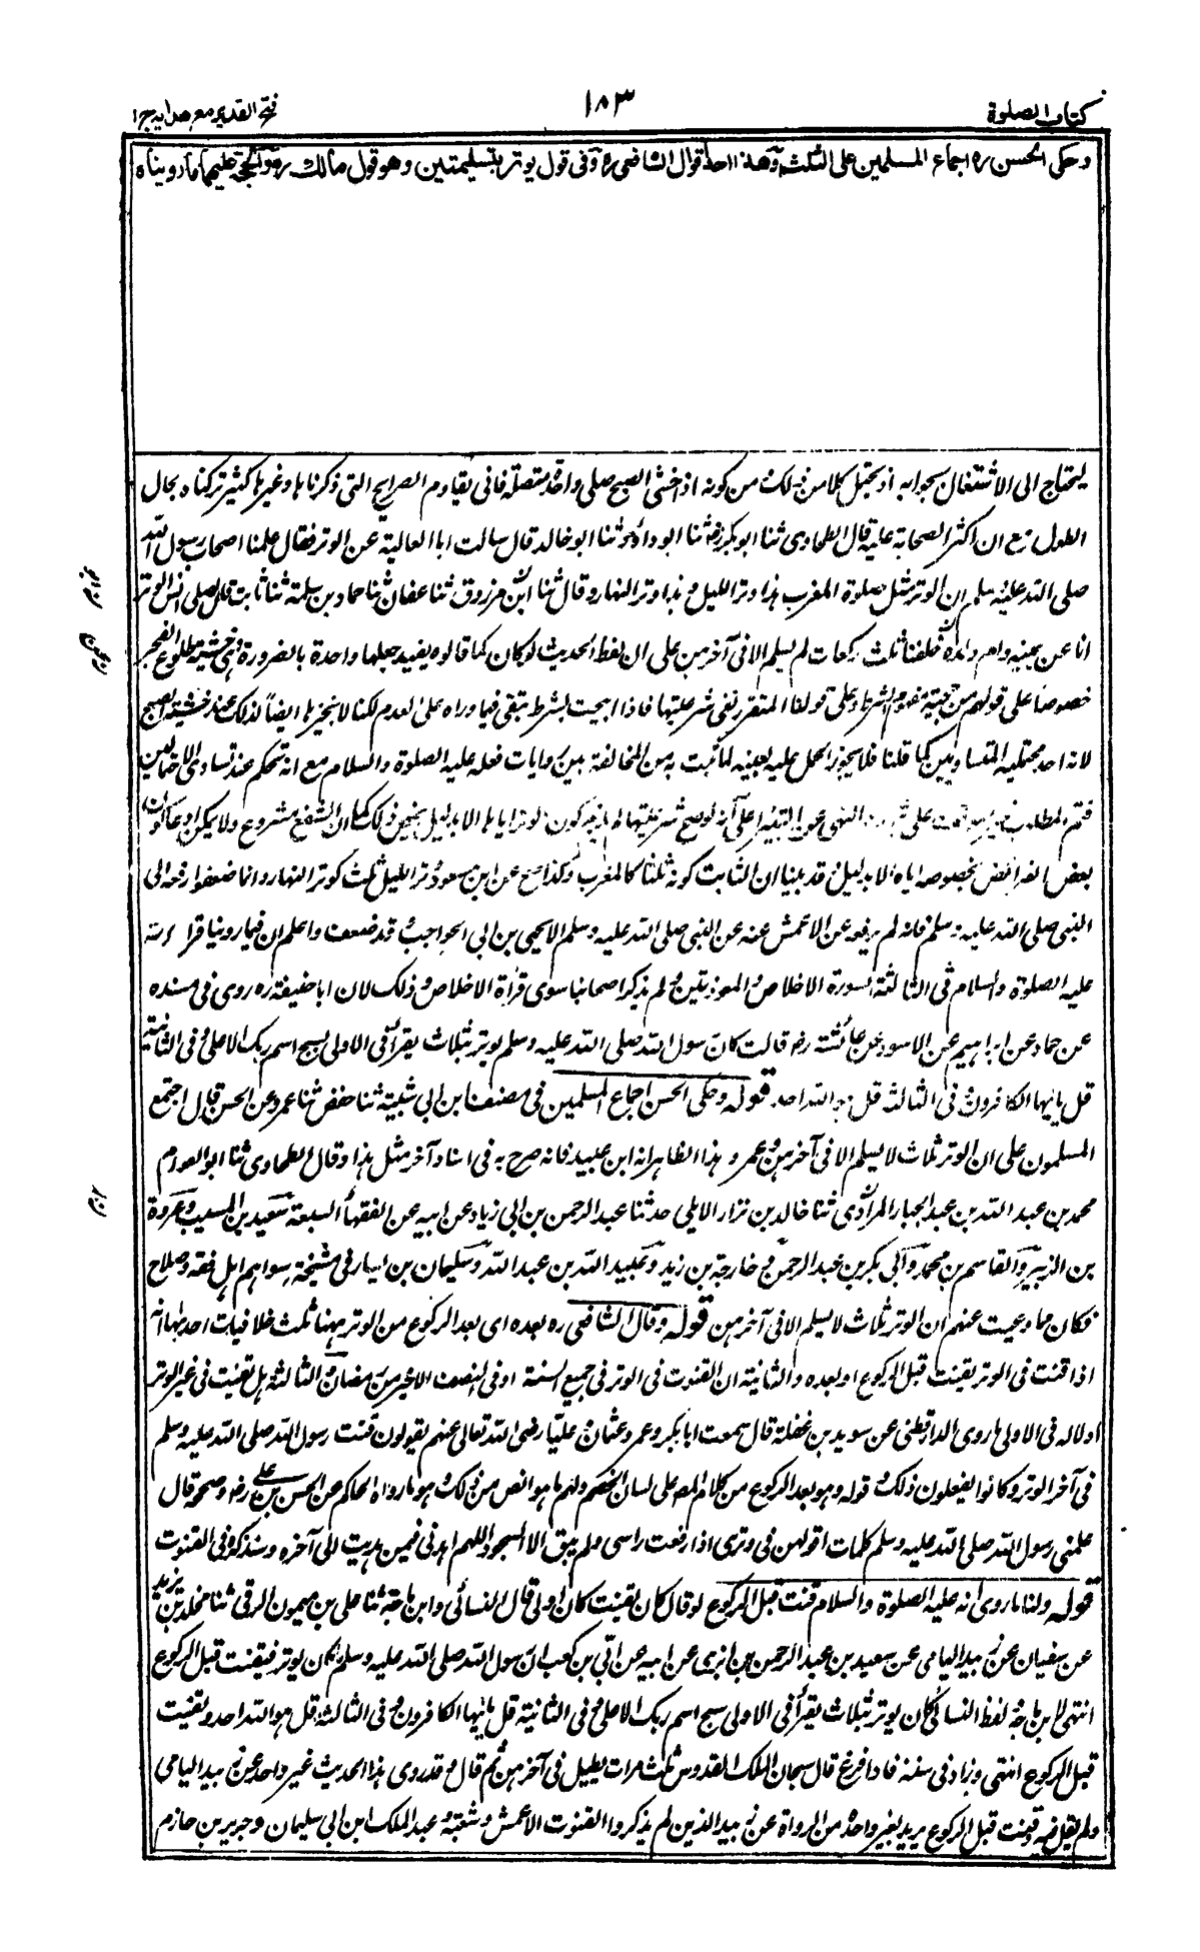 كتاب الصلوة
١٨٣
فتح القدير مع هدايه ج ١
وحكى الحسن ره اجماع المسلمين على الثلث وهذا احد اقوال الشافعى ره وفى قول يوتر بتسليمتين وهو قول مالك ره والحجة عليهما ما رويناه
يحتاج الى الاشتغال بجوابه اذ يحتمل كلا من ذلك من كونه اذا خشى الصبح صلى واحدة متصلة فانى يقاوم الصرايح التى ذكرناها وغيرها كثير تركناه بحال
الطول مع ان اكثر الصحابة عليه قال الطحاوى ثنا ابو بكرة ثنا ابو داؤد ثنا ابو خالد قال سالت ابا العالية عن الوتر فقال علمنا اصحاب رسول الله
صلى الله عليه وسلم ان الوتر مثل صلوة المغرب هذا وتر الليل وهذا وتر النهار وقال ثنا ابن مرزوق ثنا عفان ثنا حماد بن سلمة ثنا ثابت قال صلى انس الوتر
انا عن يمينه وام ولده خلفنا ثلث ركعات لم يسلم الا فى آخرهن على ان لفظ الحديث لو كان كما قالوه يفيد جعلها واحدة بالضرورة وهى خشية طلوع الفجر
خصوصا على قولهم من حجية مفهوم الشرط وعلى قولنا المتقرر نفى شرعيتها فاذا ابيحت بشرط تبقى فيما وراه على العدم لكنا لا نجيزها ايضا لذلك عند خشية الصبح
لانه احد محتمليه المتساويين كما قلنا فلا يجوز الحمل عليه بعينه لما ثبت به من المخالفة بين روايات فعله عليه الصلوة والسلام مع انه تحكم عند تساوى الاحتمالين
فتم المطلوب على النهى عن البتيراء على انه لو صح شرعيتها لم يلزم كون الوتر اياها الا بدليل يخص ذلك كما ان الشفع مشروع ولا يمكن ادعاء كون
بعض الفرائض بخصوصه اياه الا بدليل وقد بينا ان الثابت كونه ثلثا كالمغرب وكذا صح عن ابن مسعود وتر الليل ثلث كوتر النهار وانما ضعفوا رفعه الى
النبى صلى الله عليه وسلم فانه لم يرفعه عن الاعمش عنه عن النبى صلى الله عليه وسلم الا يحيى بن ابى الحواجب وقد ضعف واعلم ان فيما روينا قراءته
عليه الصلوة والسلام فى الثالثة بسورة الاخلاص والمعوذتين ولم يذكر اصحابنا سوى قراءة الاخلاص وذلك لان ابا حنيفة ره روى فى مسنده
عن حماد عن ابراهيم عن الاسود عن عائشة رضه قالت كان رسول الله صلى الله عليه وسلم يوتر بثلاث يقرأ فى الاولى بسبح اسم ربك الاعلى وفى الثانية
قل يايها الكافرون وفى الثالثة قل هو الله احد. قوله وحكى الحسن اجماع المسلمين فى مصنف ابن ابى شيبة ثنا حفص ثنا عمرو عن الحسن قال اجتمع
المسلمون على ان الوتر ثلاث لا يسلم الا فى آخرهن وعمرو هذا الظاهر انه ابن عبيد فانه صرح به فى اسناد آخر مثل هذا وقال الطحاوى ثنا ابو العوام
محمد بن عبد الله بن عبد الجبار المرادى ثنا خالد بن نزار الايلى حدثنا عبد الرحمن بن ابى زياد عن ابيه عن الفقهاء السبعة سعيد بن المسيب وعروة
بن الزبير والقاسم بن محمد وابى بكر بن عبد الرحمن وخارجة بن زيد وعبيد الله بن عبد الله وسليمان بن يسار فى مشيخة سواهم اهل فقه وصلاح
فكان مما وعيت عنهم ان الوتر ثلاث لا يسلم الا فى آخرهن قوله وقال الشافعى ره بعده اى بعد الركوع من الوتر ههنا ثلث خلافيات احدها انه
اذا قنت فى الوتر يقنت قبل الركوع او بعده والثانية ان القنوت فى الوتر فى جميع السنة او فى النصف الاخير من رمضان الثالثة هل يقنت فى غير الوتر
اولا له فى الاولى ما روى الدارقطنى عن سويد بن غفلة قال سمعت ابا بكر وعمر وعثمان وعليا رضى الله تعالى عنهم يقولون قنت رسول الله صلى الله عليه وسلم
فى آخر الوتر وكانوا يفعلون ذلك وقوله وهو بعد الركوع من كلام المص على لسان الخصم ولهم ما هو انص من ذلك وهو ما رواه الحاكم عن الحسن بن على رضه وصححه قال
علمنى رسول الله صلى الله عليه وسلم كلمات اقولهن فى وترى اذا رفعت راسى ولم يبق الا السجود اللهم اهدنى فيمن هديت الى آخره وسنذكره فى القنوت
قوله ولنا ما روى انه عليه الصلوة والسلام قنت قبل الركوع لو قال كان يقنت كان اولى قال النسائى وابن ماجة ثنا على بن ميمون الرقى ثنا مخلد بن يزيد
عن سفيان عن زبيد اليامى عن سعيد بن عبد الرحمن بن ابزى عن ابيه عن ابى بن كعب ان رسول الله صلى الله عليه وسلم كان يوتر فيقنت قبل الركوع
انتهى لابن ماجة ولفظ النسائى كان يوتر بثلاث يقرأ فى الاولى سبح اسم ربك الاعلى وفى الثانية قل يايها الكافرون وفى الثالثة قل هو الله احد ويقنت
قبل الركوع انتهى وزاد فى سننه فاذا فرغ قال سبحان الملك القدوس ثلث مرات يطيل فى آخرهن ثم قال وقد روى هذا الحديث غير واحد عن زبيد اليامى
ولم يقل فيه وقنت قبل الركوع يريد بغير واحد من الرواة عن زبيد الذين لم يذكروا القنوت الاعمش وشعبة وعبد الملك ابن ابى سليمان وجرير بن حازم